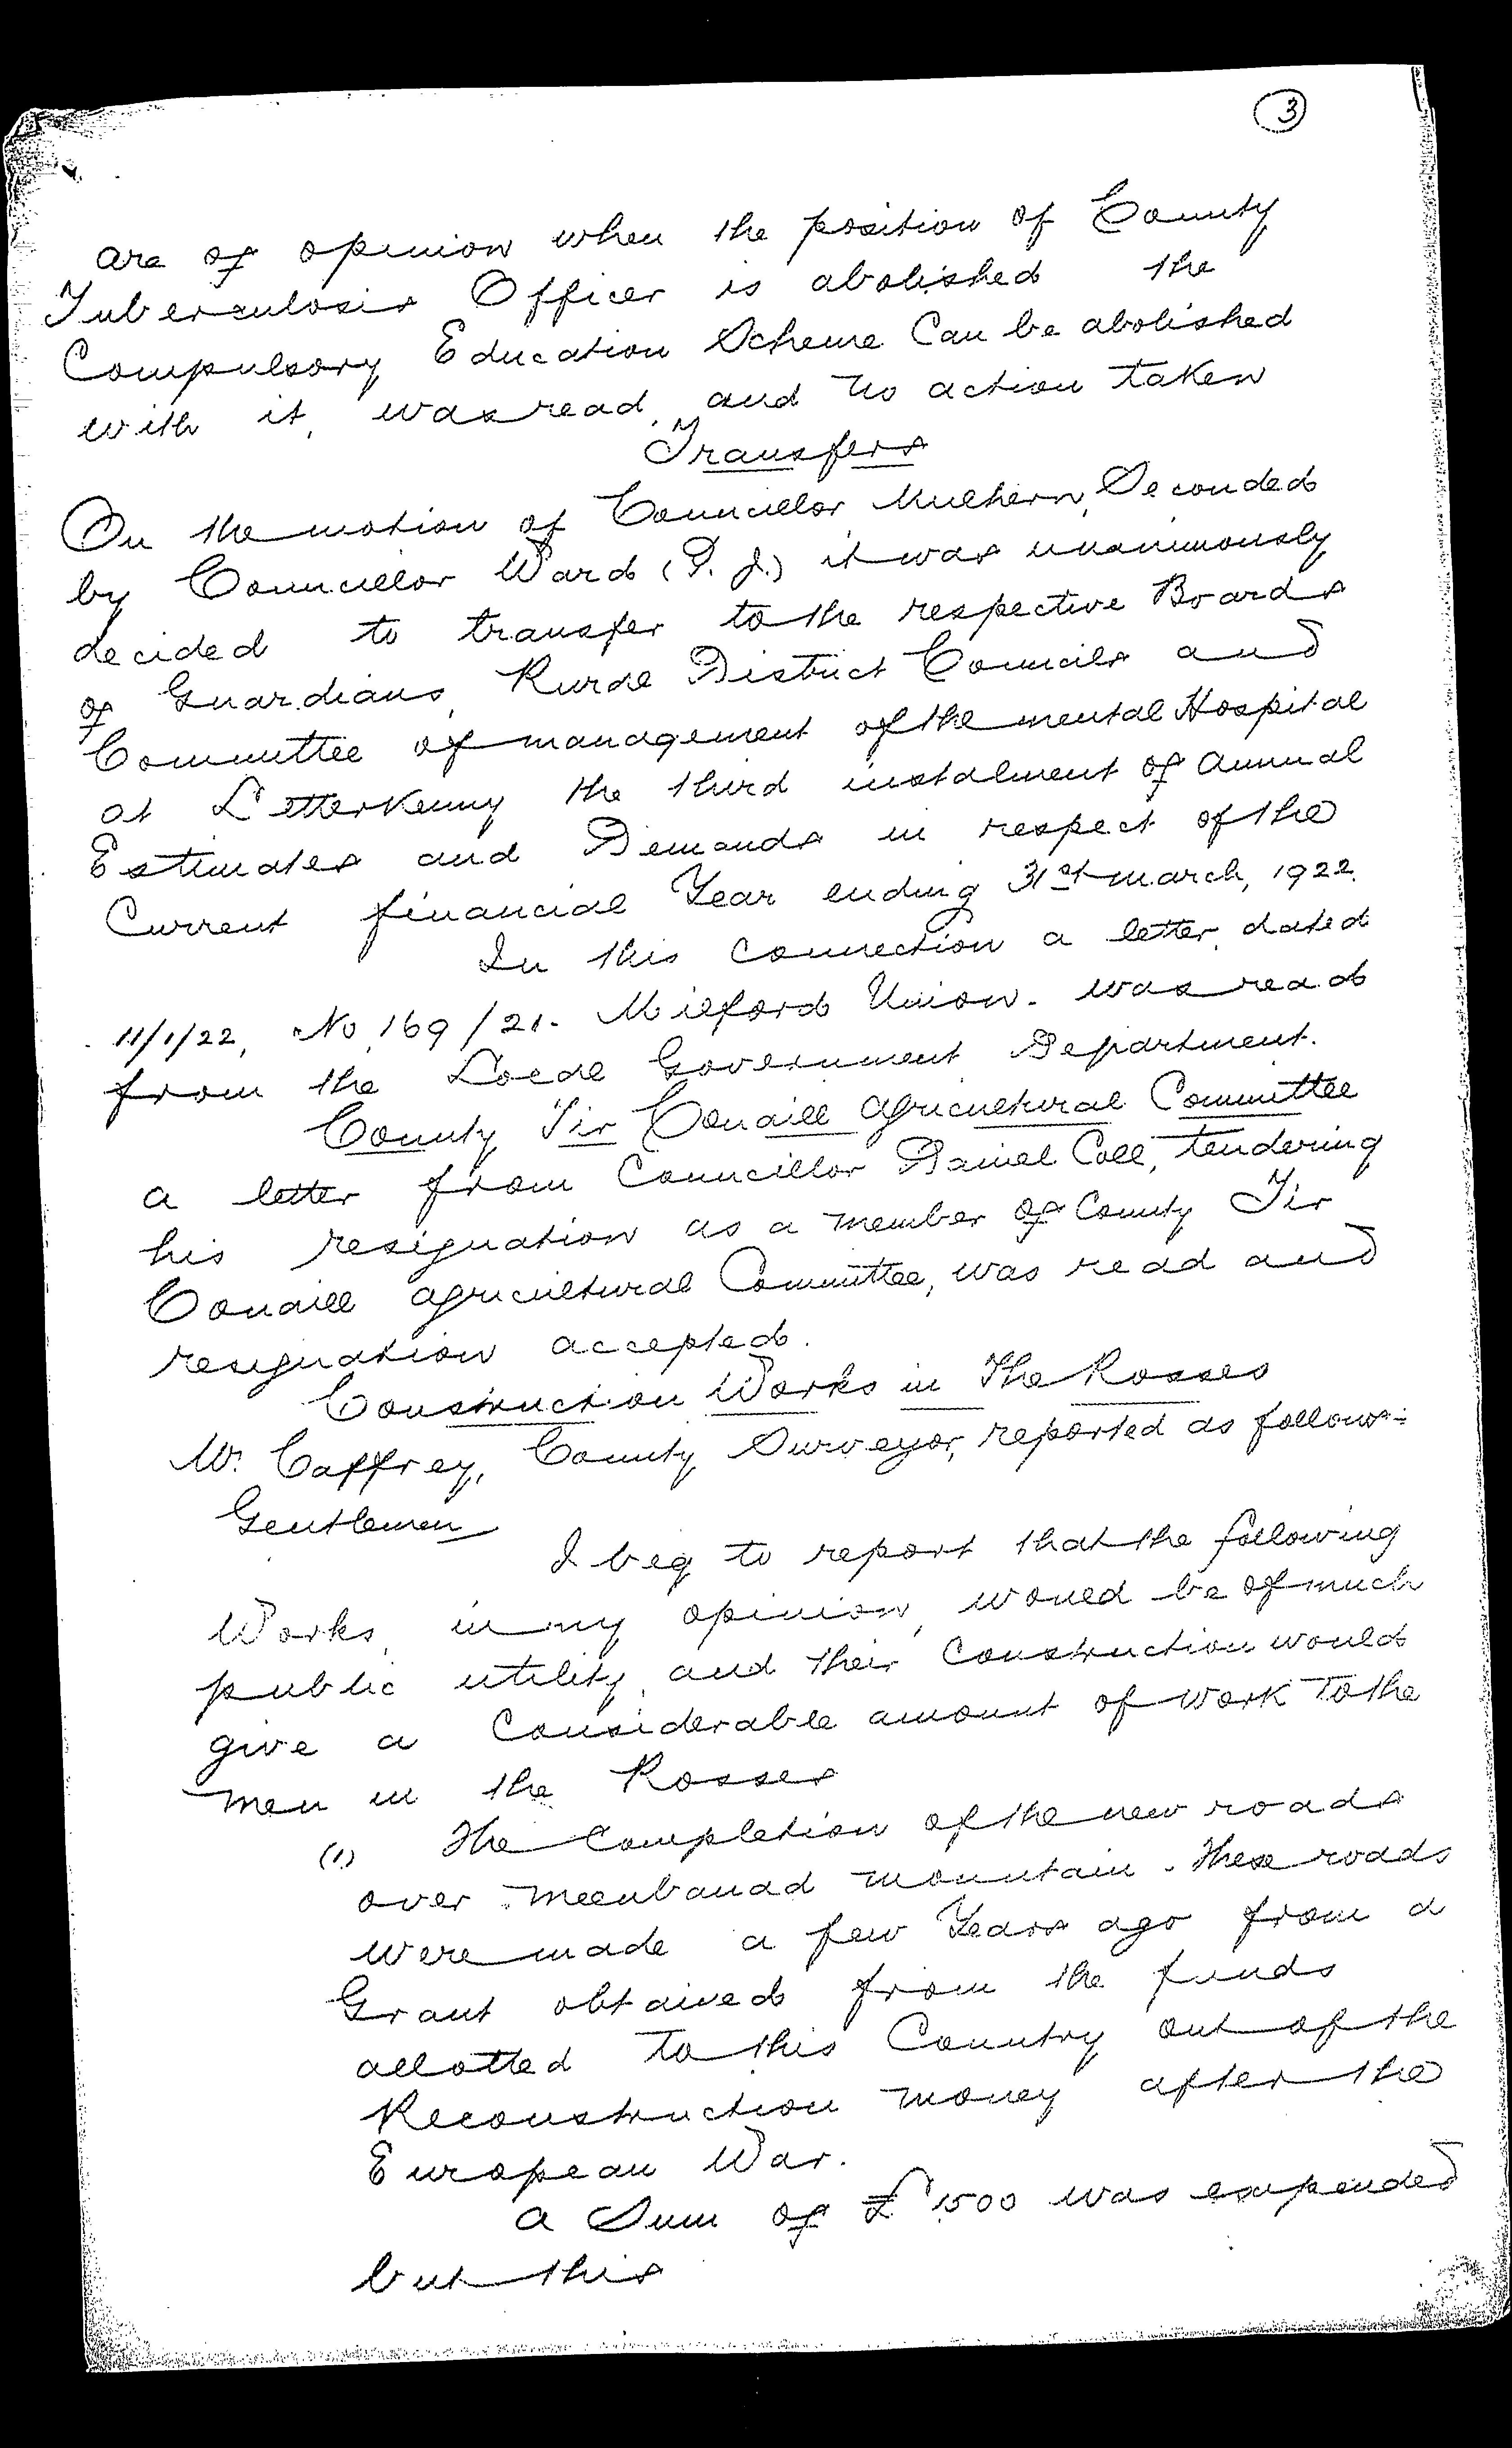 3
are of opinion when the position of County
Tuberculosis Officer is abolished the
Compulsory Education Scheme Can be abolished
with it, was read, and no action taken
Transfers
On the motion of Councillor Mulhern, Seconded
by Councillor Ward (P. J.) it was unanimously
decided to transfer to the respective Boards
of Guardians, Rural District Councils and
Committee of management of the mental Hospital
at Letterkenny the third instalment of annual
Estimates and Demands in respect of the
Current financial Year ending 31st march, 1922.
In this connection a letter dated
11/1/22, No 169/21. Milford Union. was read
from the Local Government Department.
County Tir Conaill agricultural Committee
a letter from Councillor Daniel Coll, tendering
his resignation as a member of County Tir
Conaill agricultural Committee, was read and
resignation accepted.
Construction Works in The Rosses
Mr. Caffrey, County Surveyor, reported as follows:-
Gentlemen
I beg to report that the following
Works, in my opinion, would be of much
public utility, and their construction would
give a Considerable amount of work to the
men in the Rosses
(1) The Completion of the new roads
over meenbanad mountain. These roads
were made a few Years ago from a
Grant obtained from the funds
allotted to this Country out of the
Reconstruction money after the
European War.
a Sum of £1500 was expended
but this